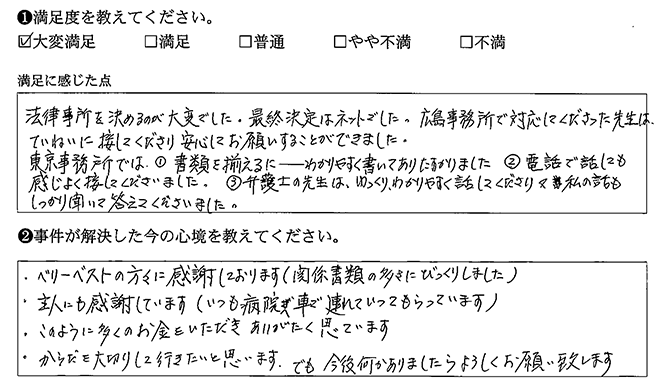 ❶満足度を教えてください。
☑大変満足 □満足 □普通 □やや不満 □不満
満足に感じた点
法律事所を決めるのが大変でした。最終決定はネットでした。広島事務所で対応してくださった先生は、
ていねいに接してくださり安心してお願いすることができました。
東京事務所では、① 書類を揃えるに――わかりやすく書いてありたすかりました ② 電話で話しても
感じよく接してくださいました。 ③弁護士の先生は、ゆっくりわかりやすく話してくださり 私の話も
しっかり聞いて答えてくださいました。
❷事件が解決した今の心境を教えてください。
・ベリーベストの方々に感謝しております(関係書類の多さにびっくりしました)
・主人にも感謝しています(いつも病院 車で連れていってもらっています)
・このように多くのお金をいただき ありがたく思っています
・からだを大切りして行きたいと思います。でも今後何かありましたらよろしくお願い致します